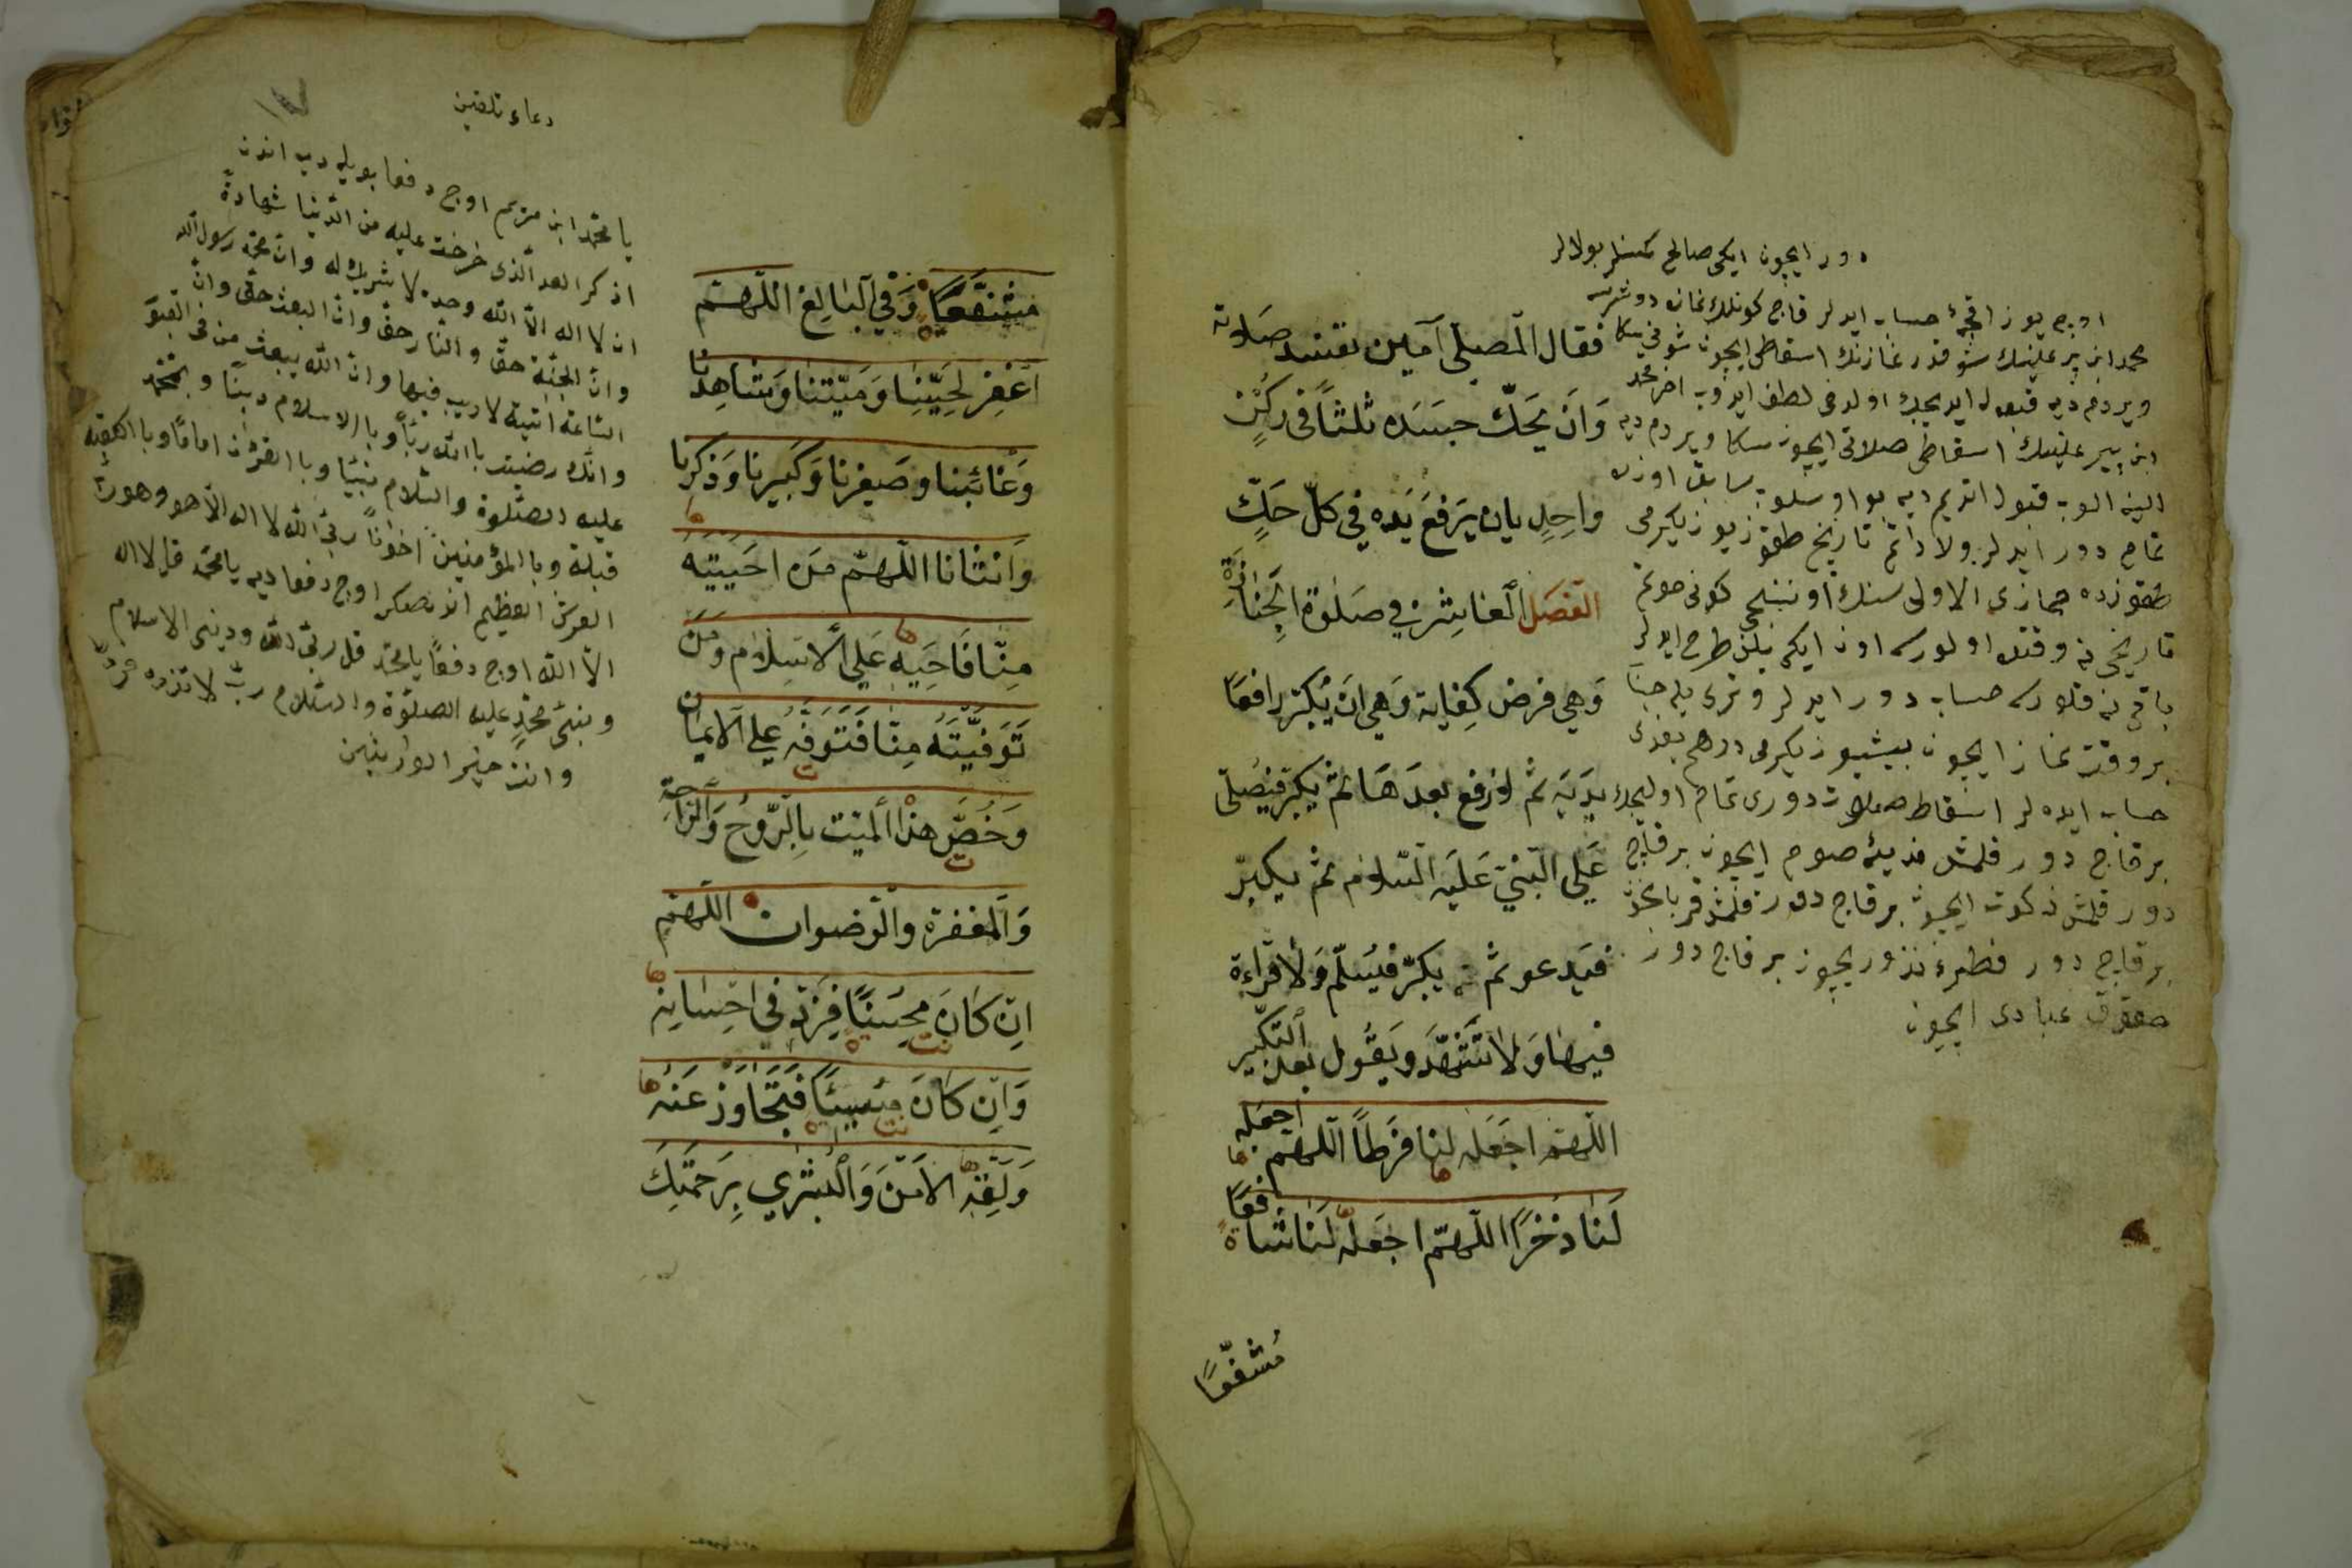 دور ايچون ايكى صالح كمسنلر بولالر
اوچ يوز اقچهٔ حساب ايدلر قاچ كونلك نمازه دوشرسه
محمد ابن پير علينك شو قدر نمازنك اسقاطى ايچون شونى سكا
ويردم ديه قبول ايديجك اولدخى لطف ايدوب اخر محمد
ابن پير علينك اسقاطى صلاتى ايچون سكا ويردم ديه
الينه الوب قبول اتديم ديه بو اوسلوب سابق اوزره
تمام دور ايدلر ولادتم تاريخ طقوز يوز يكرمى
طقوزده جمازى الاولى سنك اونبشنجى كونى موتم
تاريخى نه وقتده اولورسه اون ايكى يلن طرح ايدلر
باقى نه قلورسه حساب دور ايدلر وترى يله جنا
بر وقت نماز ايچون بيشيوز يكرمى درهم بغدى
حساب ايده لر اسقاط صلات دورى تمام اوليجك
بر قاچ دور قلمش فديهٔ صوم ايچون بر قاچ
دور قلمش زكوت ايچون بر قاچ دور قلمش قربان ايچون
بر قاچ دور فطره نذور ايچون بر قاچ دور
حقوق عبادى ايچون
فقال المصلي آمين تفسد صلاته
وان يحك جسده ثلثا في ركن
واحد بان يرفع يده في كل حك
الفصل العاشر في صلوة الجنازة
وهي فرض كفاية وهي ان يكبر رافعا
يديه ثم لا رفع بعدها ثم يكبر فيصلي
علي النبي عليه السلام ثم يكبر
فيدعو ثم يكبر فيسلم ولا قراءة
فيها ولا تشهد ويقول بعد التكبير
اللهم اجعله لنا فرطا اللهم اجعله
لنا ذخرا اللهم اجعله لنا شافعا
مشفعا
دعاء تلقين
يا محمد ابن مريم اوچ دفعا بويله ديه اندن
اذكر العهد الذى خرخت عليه من الدنيا شهادة
ان لا اله الا الله وحده لا شريك له وان محمد رسول الله
وان الجنة حق والنار حق وان البعث حق وان
الساعة اتية لا ريب فيها وان الله يبعث من فى القبور
وانك رضيت بالله ربا وبالاسلام دينا وبمحمد
عليه الصلوة والسلام نبيا وبالقرءن اماما وبالكعبة
قبلة وبالمؤمنين اخوانا ربى الله لا اله الا هو وهو رب
العرش العظيم اندنصكرا اوچ دفعا ديه يا محمد قل لا اله
الا الله اوچ دفعا يا محمد قل ربى الله ودينى الاسلام
ونبيى محمد عليه الصلوة والسلام رب لا تذره فردا
وانت خير الوارثين
مشفعا وفي البالغ اللهم
اغفر لحينا وميتنا وشاهدنا
وغائبنا وصغيرنا وكبيرنا وذكرنا
وانثانا اللهم من احييته
منا فاحيه علي الاسلام ومن
توفيته منا فتوفه علي الايمان
وخص هذا الميت بالروح والراحة
والمغفرة والرضوان اللهم
ان كان محسنا فزد في احسانه
وان كان مسيئا فتجاوز عنه
ولقه الامن والبشري برحمتك